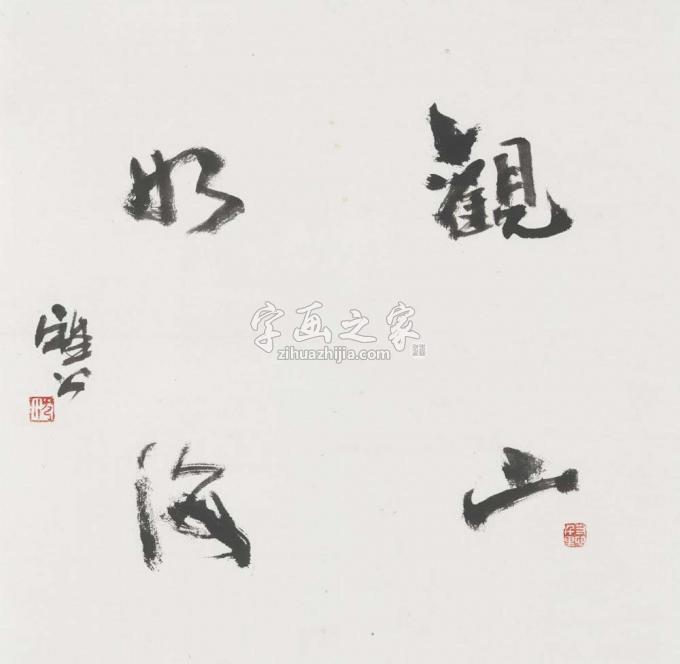 觀山
如海
字画之家
zihuazhijia.com